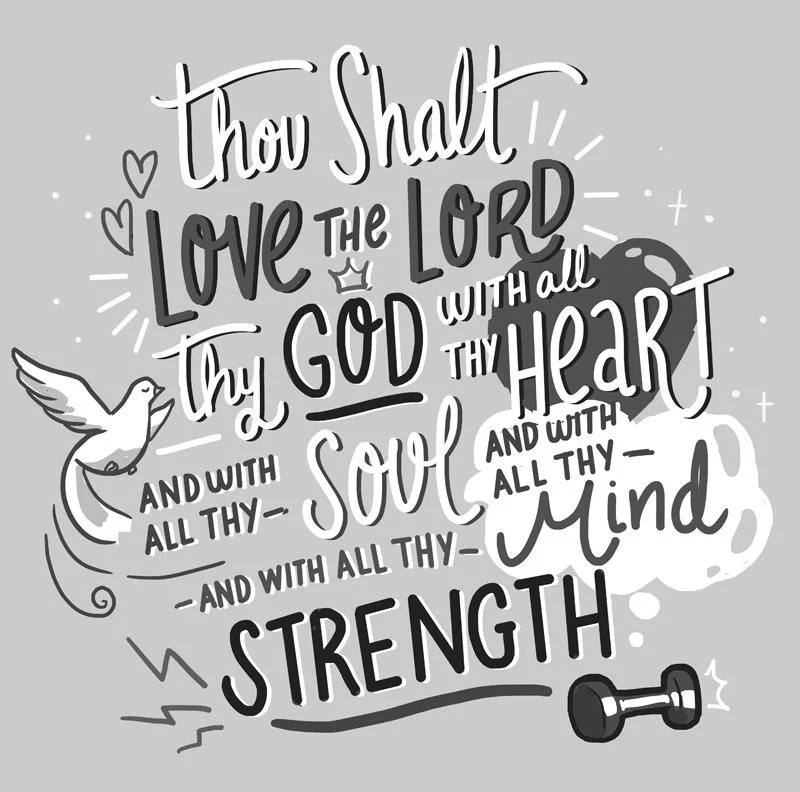 thou Shalt
LOVE THE LORD
thy GOD WITH all
THY HEaRT
AND WITH
ALL THY— SOUL
AND WITH
ALL THY—
Mind
-AND WITH ALL THY-
STRENGTH